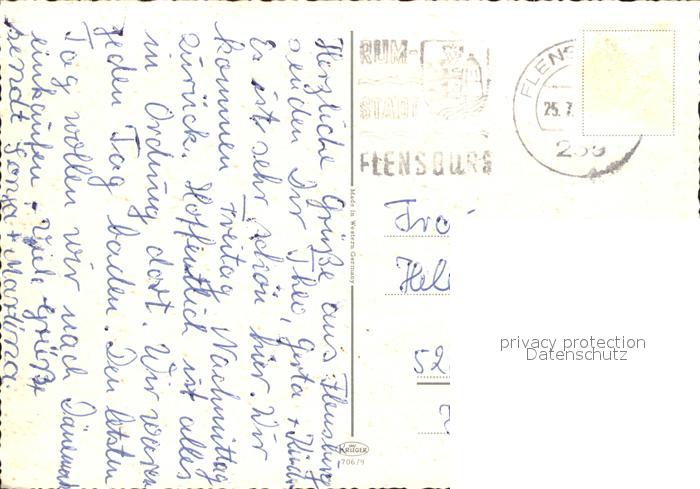 Herzliche Grüße aus Flensburg
senden Dir Theo, Gerta + Kinder
Es ist sehr schön hier. Wir
kommen Freitag Nachmittag
zurück. Hoffentlich ist alles
in Ordnung dort. Wir waren
jeden Tag baden. Den letzten
Tag wollen wir nach Dänemark
einkaufen. Viele Grüße
sendt + Martina
Made in Western Germany
KRÜGER
706/9
RUM-
STADT
FLENSBURG
FLENS
25.7.
239
Hel
52
privacy protection
Datenschutz